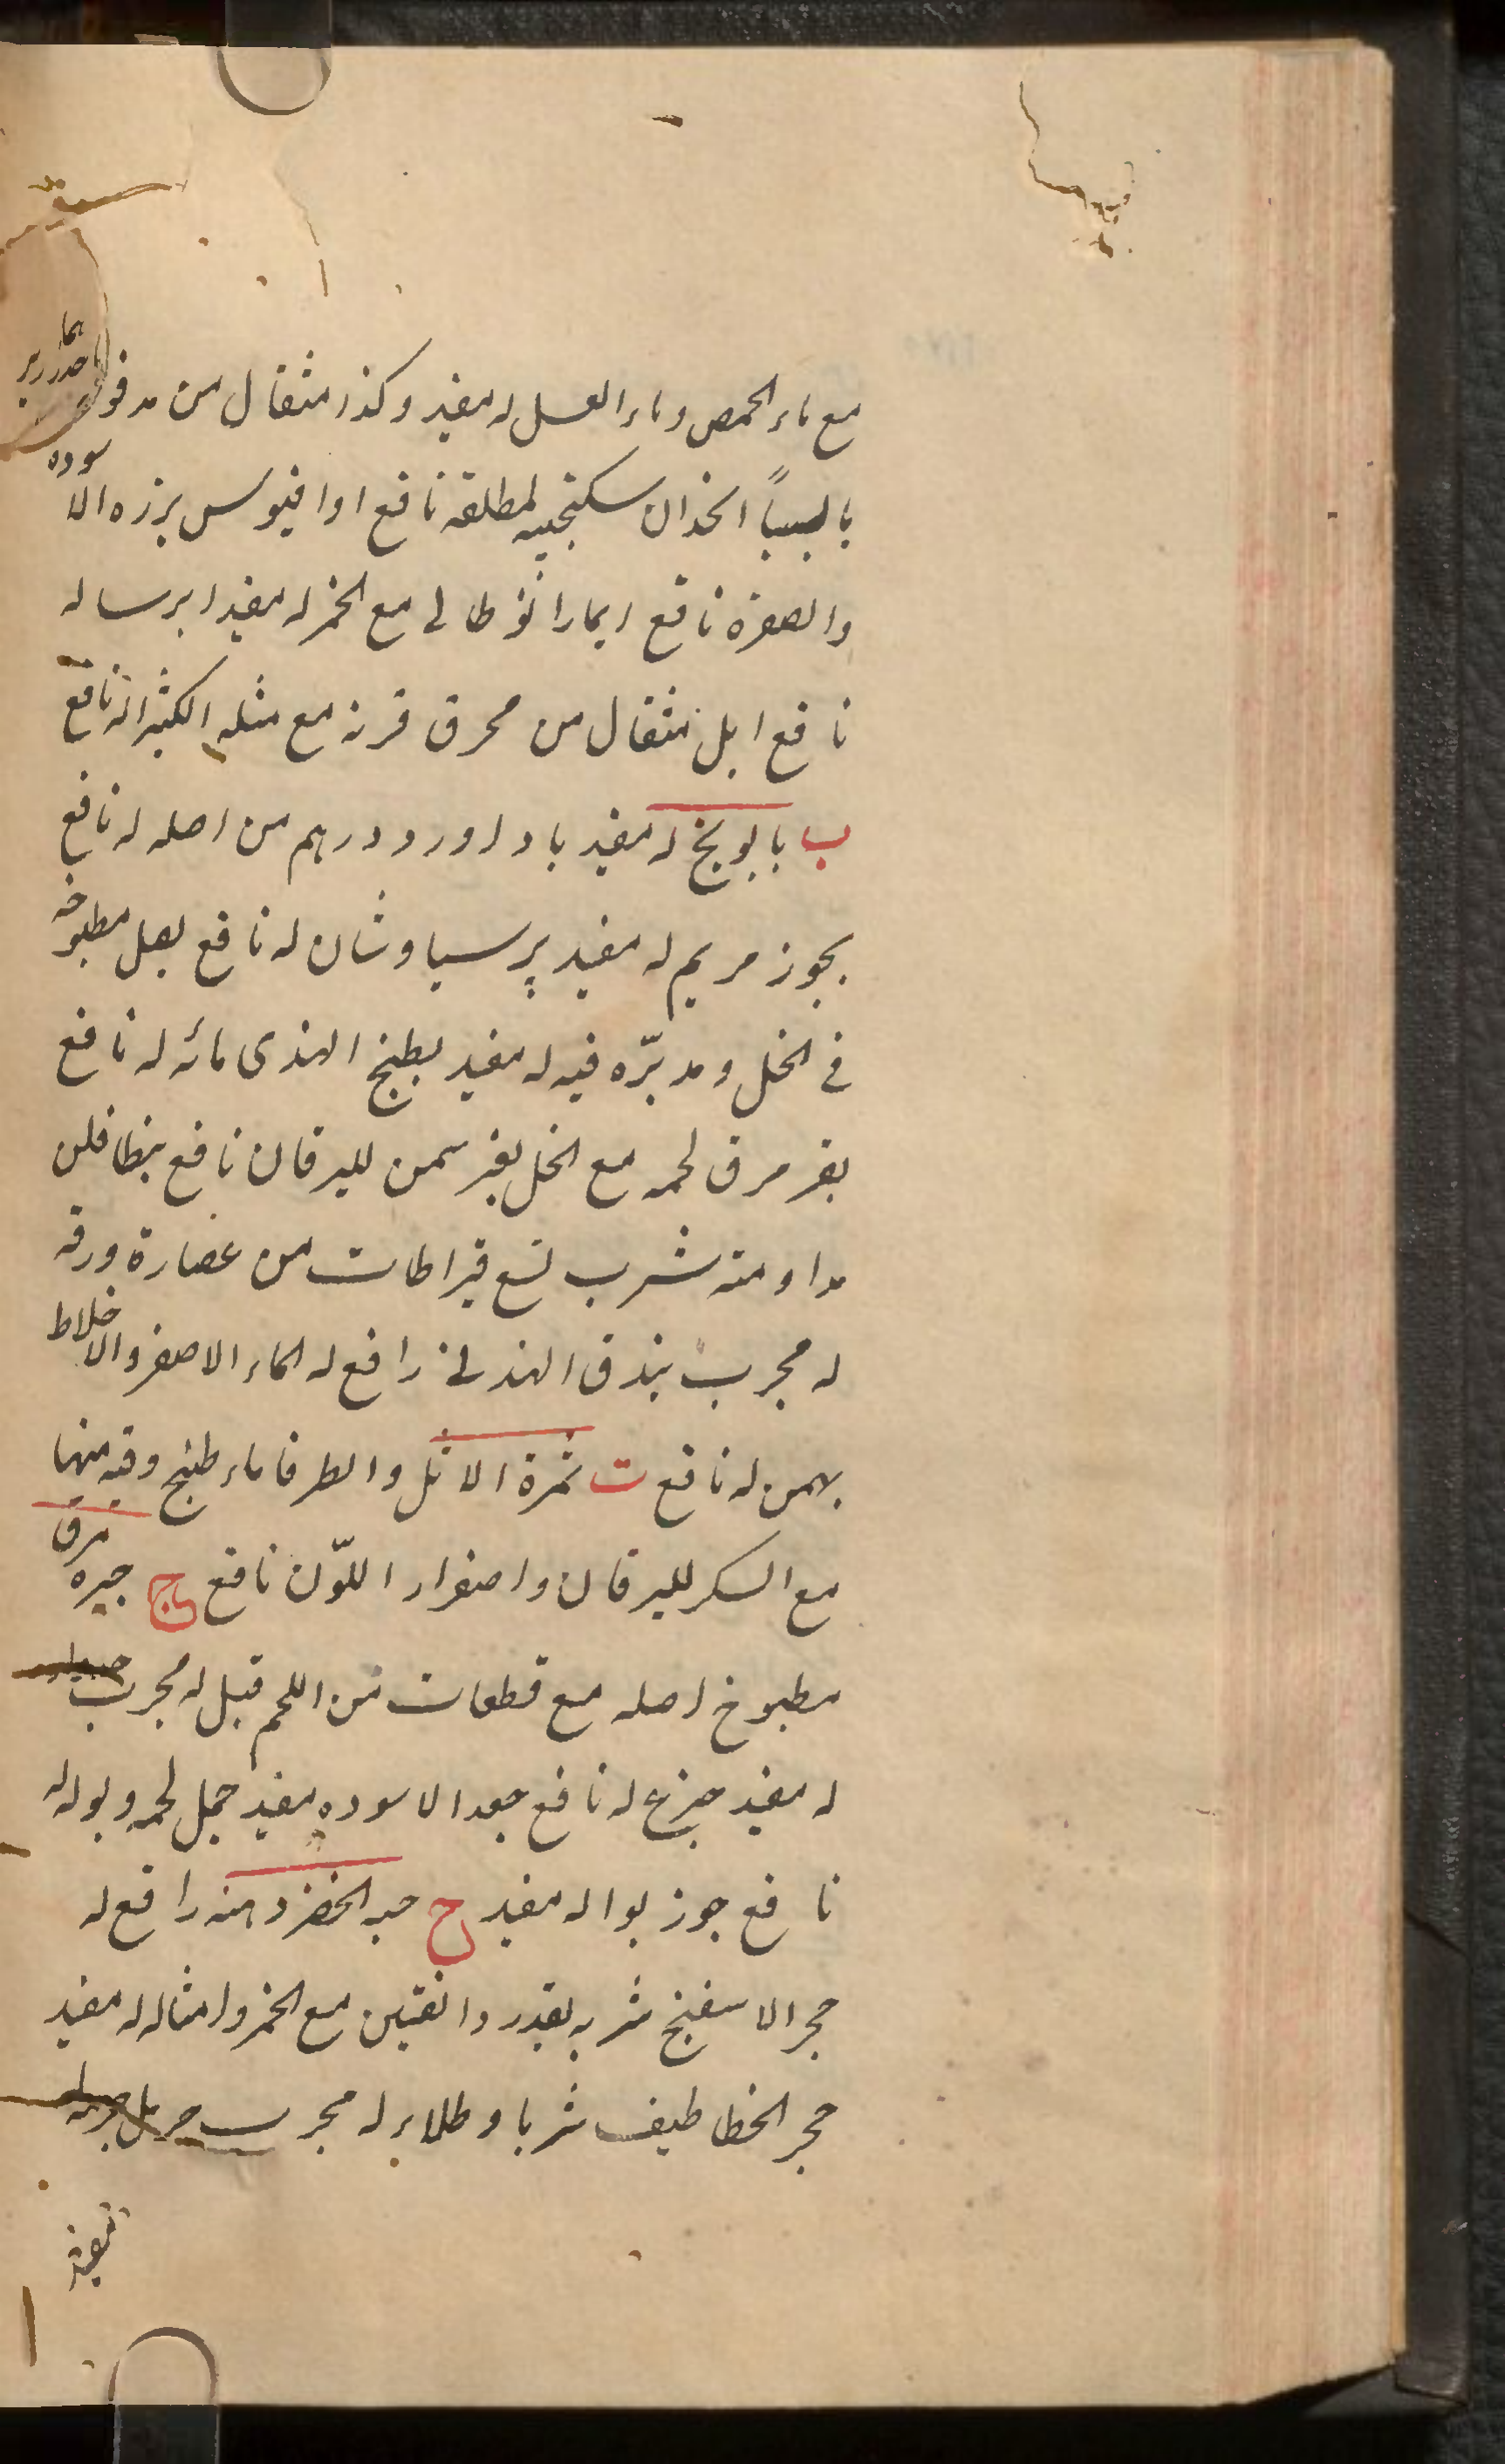 مع ماء الحمص وماء العسل له مفيد وكذا مثقال من مدقوق
انجذان سكنجبينه لمطلقه نافع اوافينوس بزره الاسوده
والصفره نافع ايمارانوطالى مع الخمر له مفيد ايرسا له
نافع ابل مثقال من محرق قرنه مع مثله الكثيرا له نافع
ب بابونج له مفيد باداورد درهم من اصله له نافع
بخور مريم له مفيد پرسياوشان له نافع بصل مطبوخه
فى الخل ومدبره فيه له مفيد بطيخ الهندى مائه له نافع
بقر مرق لحمه مع الخل بغير سمن لليرقان نافع بنطافلن
مداومته شرب تسع قيراطات من عصارة ورقه
له مجرب بندق الهندى رافع له الماء الاصفر والاخلاط
بهمن له نافع ت ثمرة الاثل والطرفا ماء طبخ وقيه منها
مع السكر لليرقان واصفرار اللّون نافع ج مرق
مطبوخ اصله مع قطعات من اللحم قبل له مجرب
له مفيد جزع له نافع جعد الاسوده مفيد جمل لحمه وبوله له
نافع جوز بوا له مفيد ح حبه الخضر دهنه رافع له
حجر الاسفنج شربه بقدر دانقين مع الخمر وامثاله له مفيد
حجر الخطاطيف شربا وطلاء له مجرب